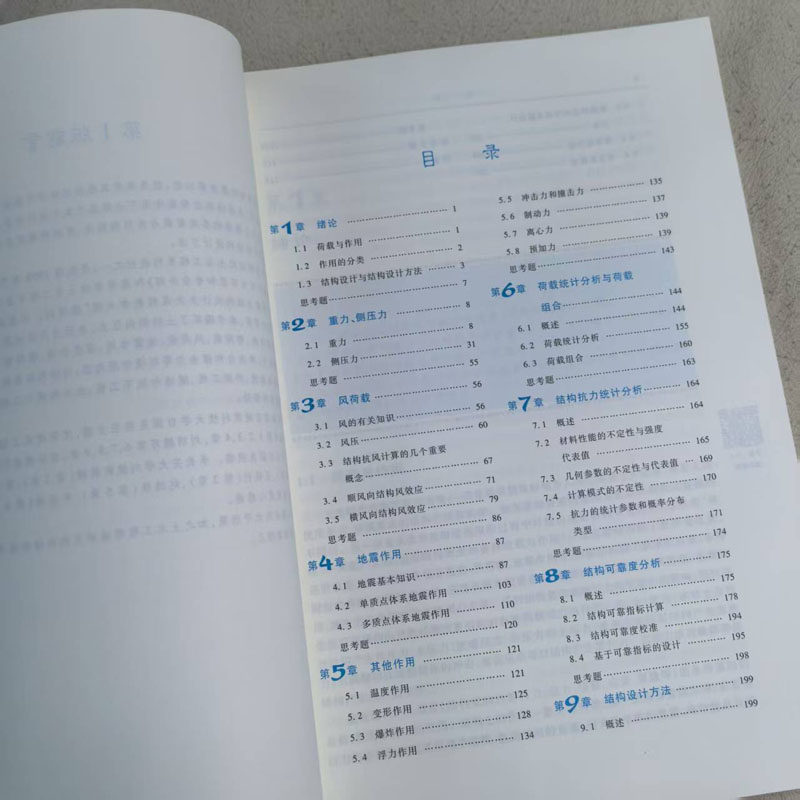 目 录
第1章 绪论 …… 1
1.1 荷载与作用 …… 1
1.2 作用的分类 …… 2
1.3 结构设计与结构设计方法 …… 3
思考题 …… 7
第2章 重力、侧压力 …… 8
2.1 重力 …… 8
2.2 侧压力 …… 31
思考题 …… 55
第3章 风荷载 …… 56
3.1 风的有关知识 …… 56
3.2 风压 …… 60
3.3 结构抗风计算的几个重要
概念 …… 67
3.4 顺风向结构风效应 …… 71
3.5 横风向结构风效应 …… 79
思考题 …… 86
第4章 地震作用 …… 87
4.1 地震基本知识 …… 87
4.2 单质点体系地震作用 …… 103
4.3 多质点体系地震作用 …… 110
思考题 …… 120
第5章 其他作用 …… 121
5.1 温度作用 …… 121
5.2 变形作用 …… 125
5.3 爆炸作用 …… 128
5.4 浮力作用 …… 134
5.5 冲击力和撞击力 …… 135
5.6 制动力 …… 137
5.7 离心力 …… 139
5.8 预加力 …… 139
思考题 …… 143
第6章 荷载统计分析与荷载
组合 …… 144
6.1 概述 …… 144
6.2 荷载统计分析 …… 155
6.3 荷载组合 …… 160
思考题 …… 163
第7章 结构抗力统计分析 …… 164
7.1 概述 …… 164
7.2 材料性能的不定性与强度
代表值 …… 165
7.3 几何参数的不定性与代表值 …… 169
7.4 计算模式的不定性 …… 170
7.5 抗力的统计参数和概率分布
类型 …… 171
思考题 …… 174
第8章 结构可靠度分析 …… 175
8.1 概述 …… 175
8.2 结构可靠指标计算 …… 178
8.3 结构可靠度校准 …… 194
8.4 基于可靠指标的设计 …… 195
思考题 …… 198
第9章 结构设计方法 …… 199
9.1 概述 …… 199